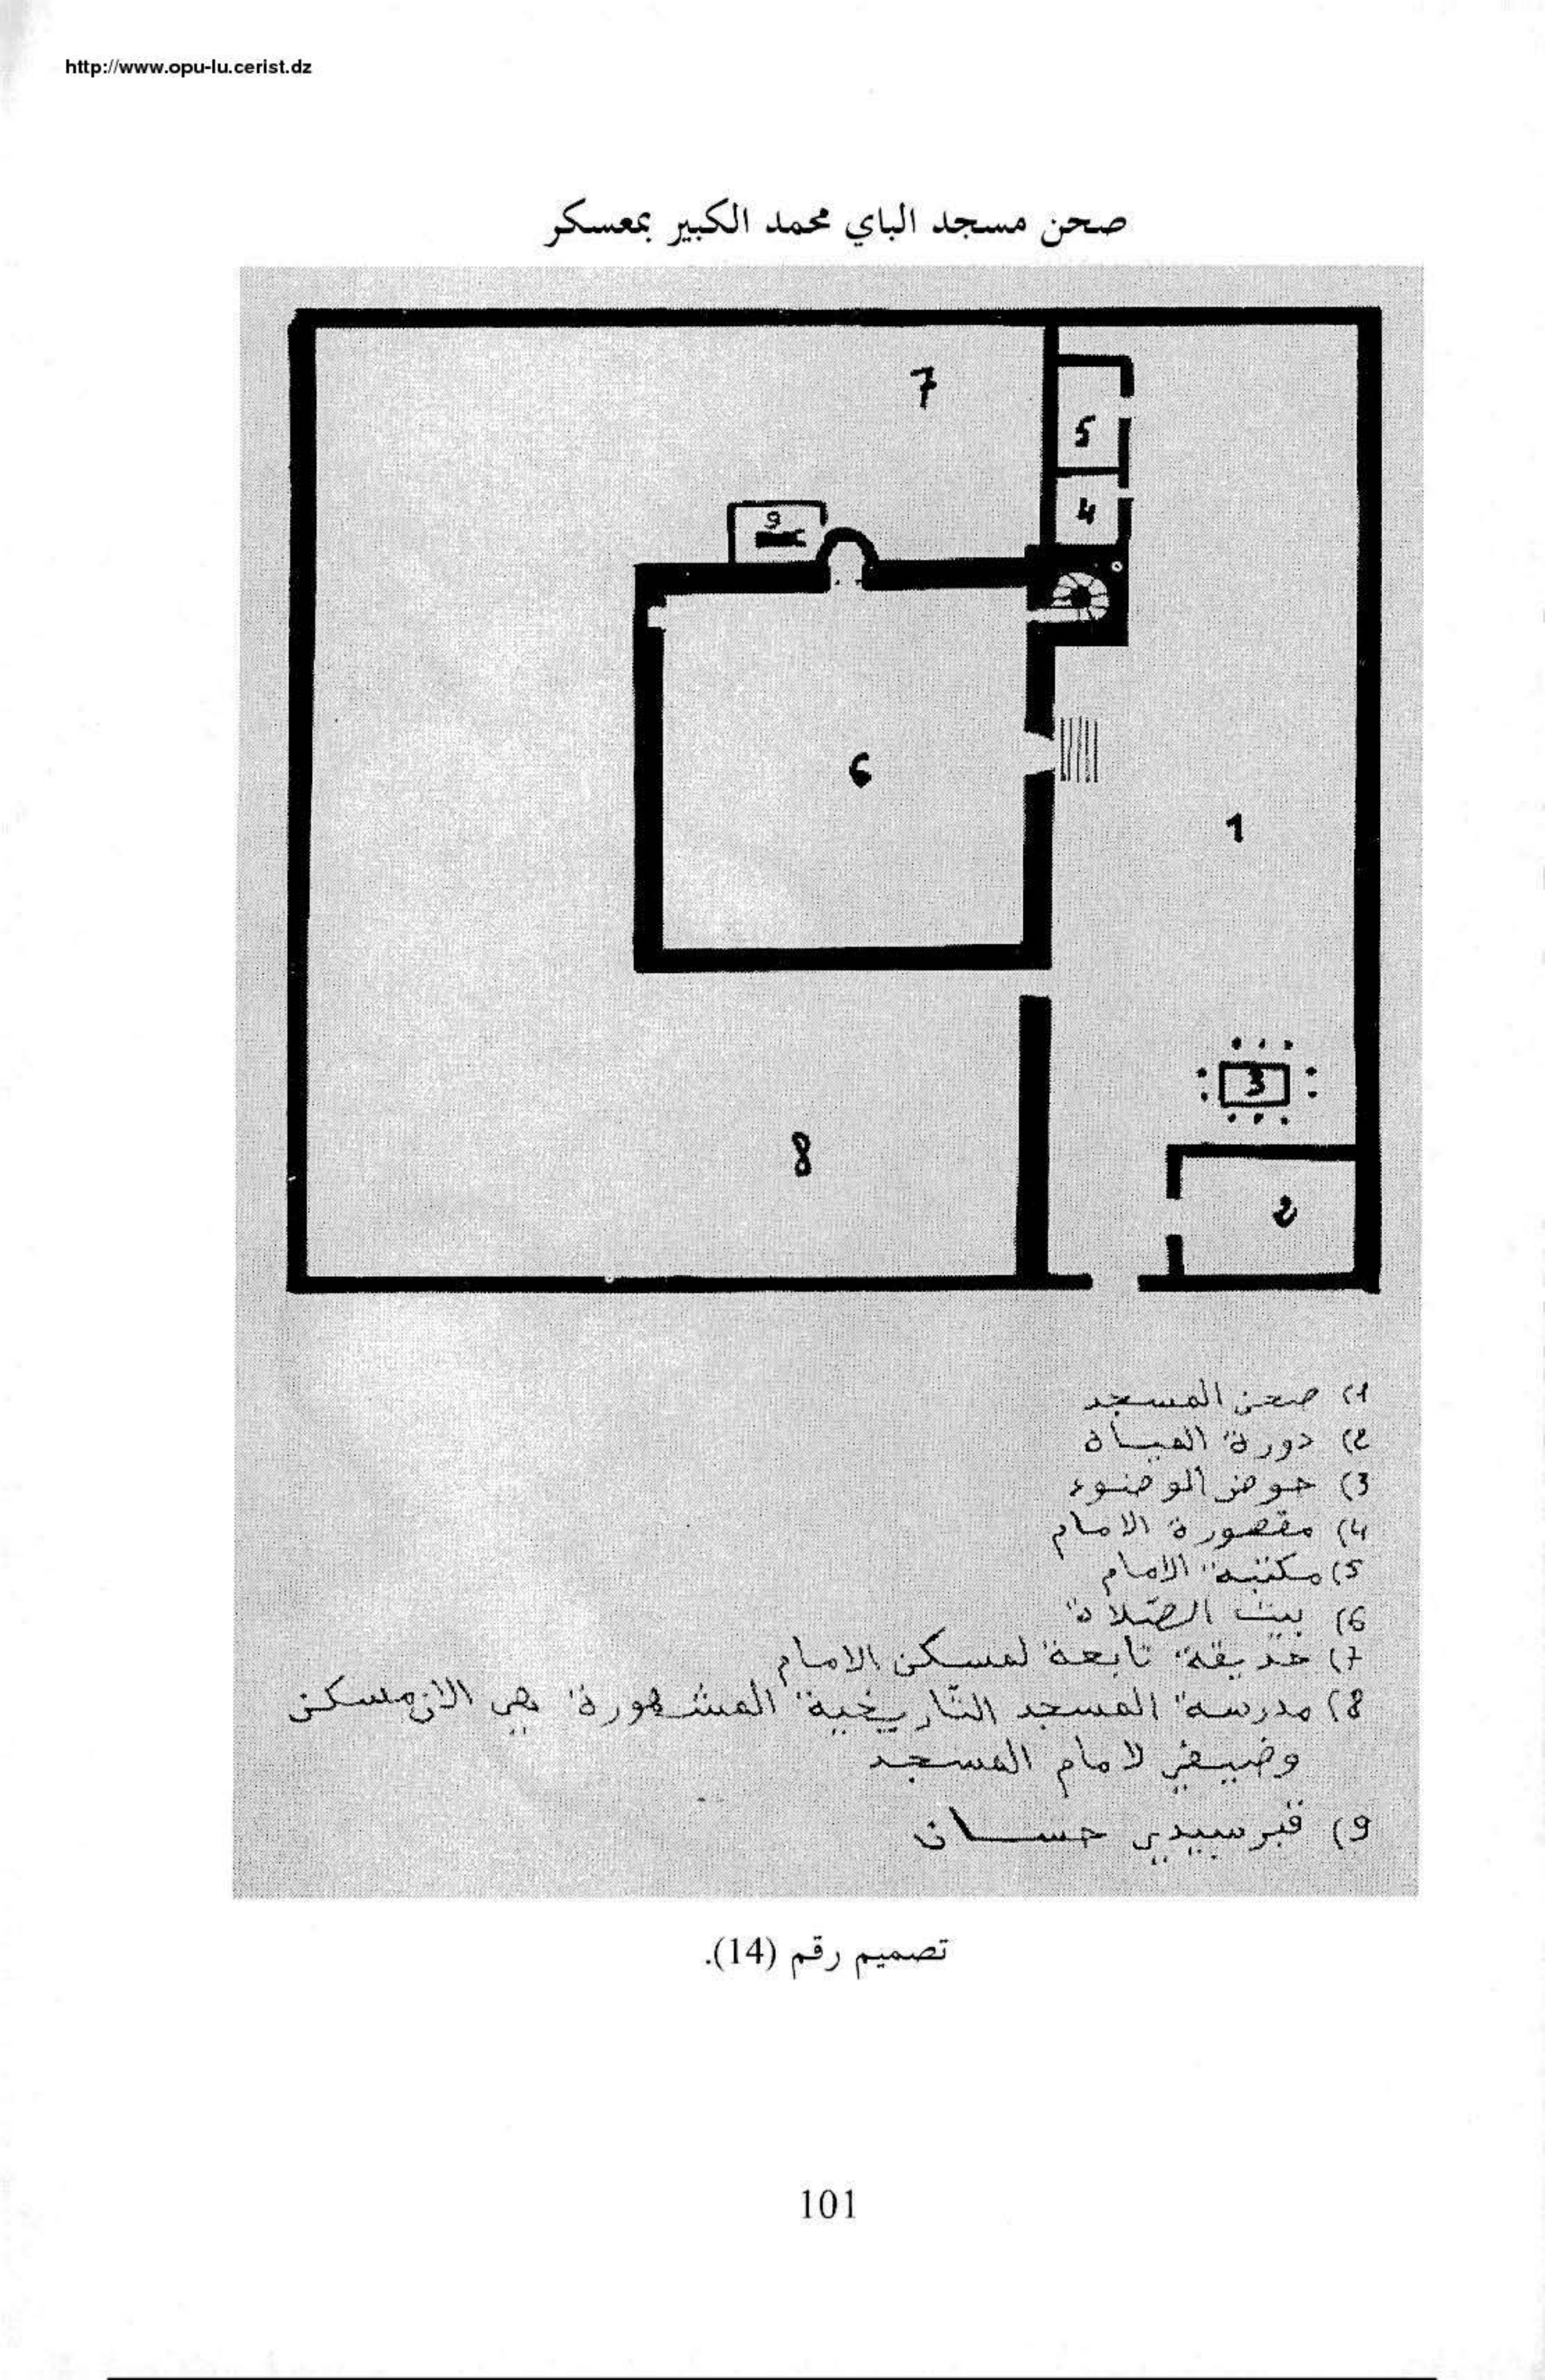 http://www.opu-lu.cerist.dz
صحن مسجد الباي محمد الكبير بمعسكر
7
5
9
4
6
1
3
8
2
1) صحن المسجد
2) دورة المياه
3) حوض الوضوء
4) مقصورة الامام
5) مكتبة الامام
6) بيت الصّلاة
7) حديقة تابعة لمسكن الامام
8) مدرسة المسجد التّاريخية المشهورة هي الان مسكن
وضيفي لامام المسجد
9) قبر سيدي حسان
تصميم رقم (14).
101